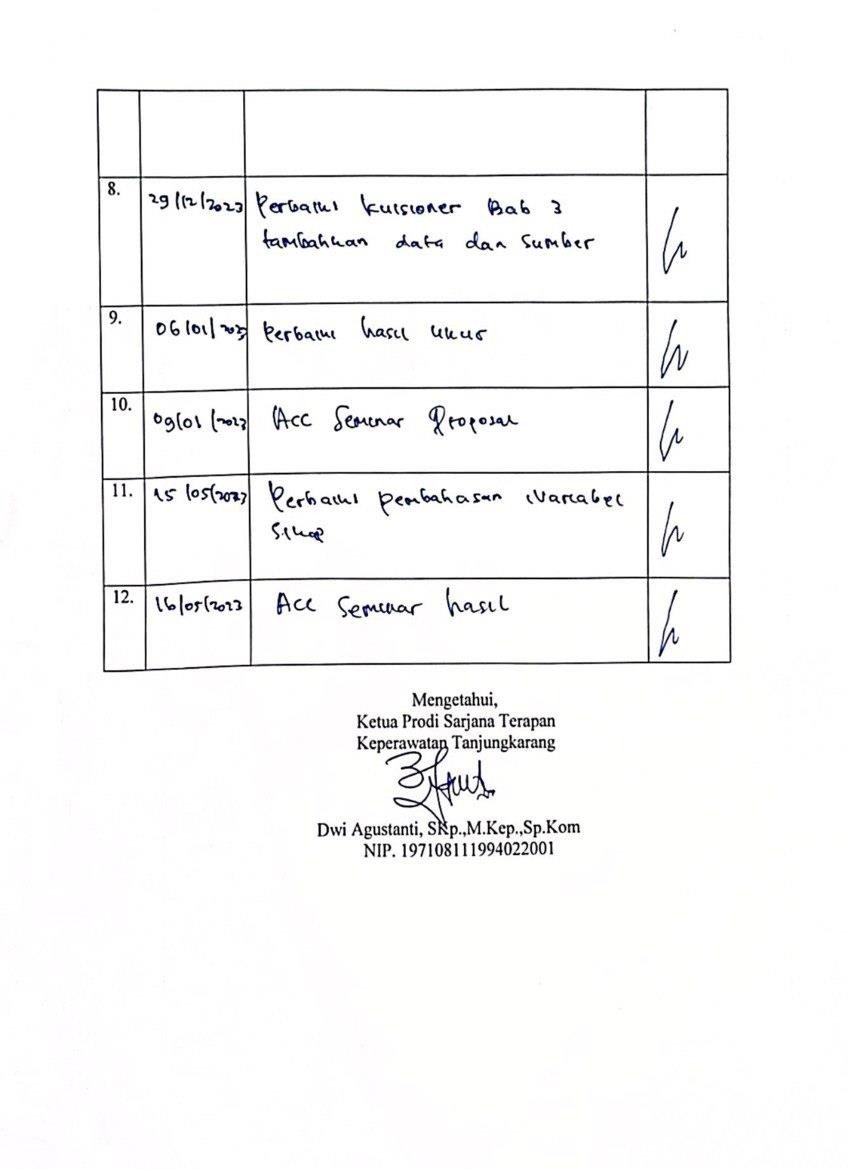 8. 29/12/2023 Perbaiki kuisioner Bab 3
tambahkan data dan sumber
9. 06/01/2023 Perbaiki hasil ukur
10. 09/01/2023 Acc Seminar Proposal
11. 15/05/2023 Perbaiki pembahasan Variabel
Sikap
12. 16/05/2023 Acc Seminar hasil
Mengetahui,
Ketua Prodi Sarjana Terapan
Keperawatan Tanjungkarang
Dwi Agustanti, SKp.,M.Kep.,Sp.Kom
NIP. 197108111994022001